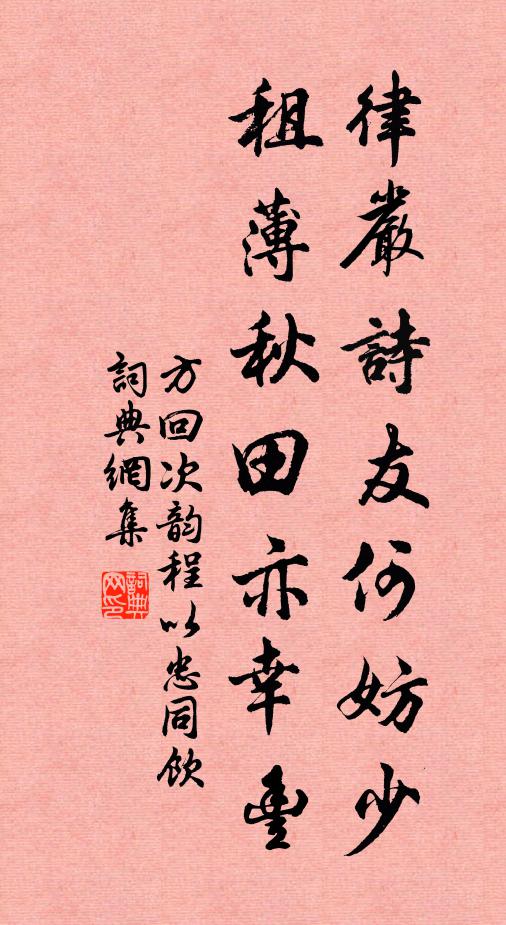 律嚴詩友何妨少
租薄秋田亦幸豐
方回次韵程以忠同飲
詞典網集
詞典网印